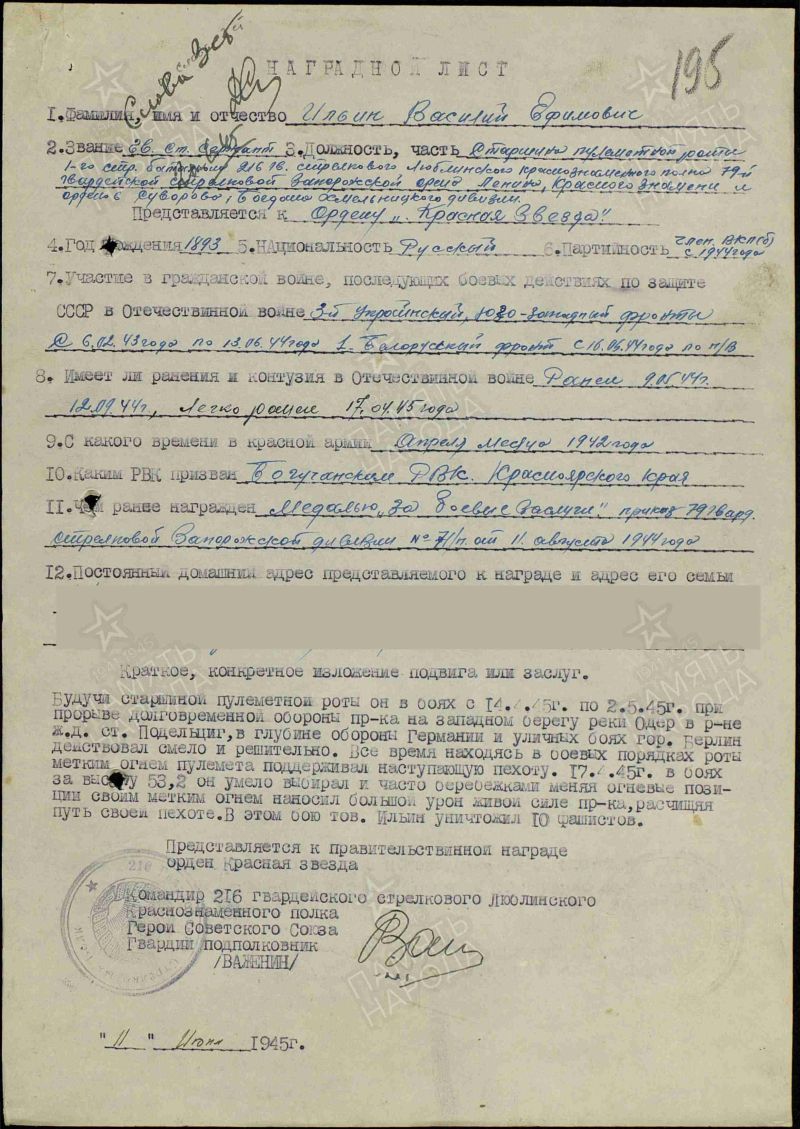 Слава 3 ст
195
НАГРАДНОЙ ЛИСТ
1.Фамилия, имя и отчество Ильин Василий Ефимович
2.Звание Гв. ст. сержант 3.Должность, часть Старшина пулеметной роты
1-го стр. батальона 216 гв. стрелкового Люблинского краснознаменного полка 79-й
гвардейской стрелковой Запорожской ордена Ленина, Красного знамени и
ордена Суворова, Богдана Хмельницкого дивизии.
Представляется к Ордену „Красная Звезда"
4.Год рождения 1893 5.НАциональность Русский 6.Партийность Член ВКП(б)
с 1944 года
7.Участие в гражданской войне, последующих боевых действиях по защите
СССР в Отечественной войне 3-й Украинский, Юго-западный фронты
с 6.02.43 года по 13.06.44 года 1 Белорусский фронт с 16.06.44 года по н/в
8. Имеет ли ранения и контузия в Отечественной войне Ранен 9.05.44г.
12.09.44г, Легко ранен 17.04.45 года
9.С какого времени в красной армии Апреля месяца 1942 года
10.Каким РВК призван Богучанским РВК. Красноярского края
11.Чем ранее награжден Медалью „За Боевые Заслуги". приказ 79 гвард.
стрелковой Запорожской дивизии № 71/н. от 11. августа 1944 года
12.Постоянный домашний адрес представляемого к награде и адрес его семьи
Краткое, конкретное изложение подвига или заслуг.
Будучи старшиной пулеметной роты он в боях с 14.4.45г. по 2.5.45г. при
прорыве долговременной обороны пр-ка на западном берегу реки Одер в р-не
ж.д. ст. Подельциг,в глубине обороны Германии и уличных боях гор. Берлин
действовал смело и решительно. Все время находясь в боевых порядках роты
метким огнем пулемета поддерживал наступающую пехоту. 17.4.45г. в боях
за высоту 53,2 он умело выбирал и часто беребежками меняя огневые пози-
ции своим метким огнем наносил большой урон живой силе пр-ка,расчищяя
путь своей пехоте.В этом бою тов. Ильин уничтожил 10 фашистов.
Представляется к правительственной награде
орден Красная звезда
Командир 216 гвардейского стрелкового Люблинского
Краснознаменного полка
Герой Советского Союза
Гвардии подполковник
/ВАЖЕНИН/
"11" Июня 1945г.
ПАМЯТЬ
НАРОДА